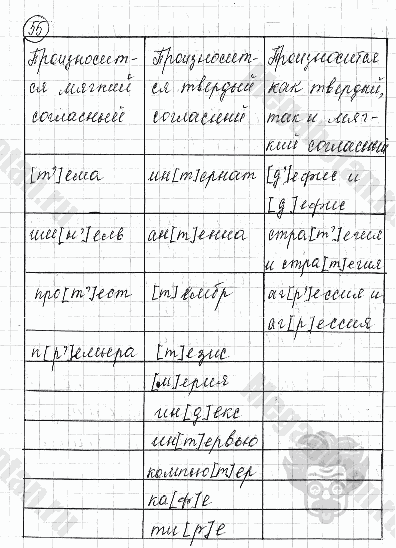 55
Произносит-
ся мягкий
согласный
Произносит-
ся твердый
согласный
Произносится
как твердый,
так и мяг-
кий согласный
[т']ема
ин[т]ернат
[д']ефис и
[д]ефис
ши[н']ель
ан[т]енна
стра[т']егия
и стра[т]егия
про[т']ест
[т]ембр
аг[р']ессия и
аг[р]ессия
п[р']емьера
[т]езис
[м]ерия
ин[д]екс
ин[т]ервью
компью[т]ер
ка[ф]е
ти[р]е